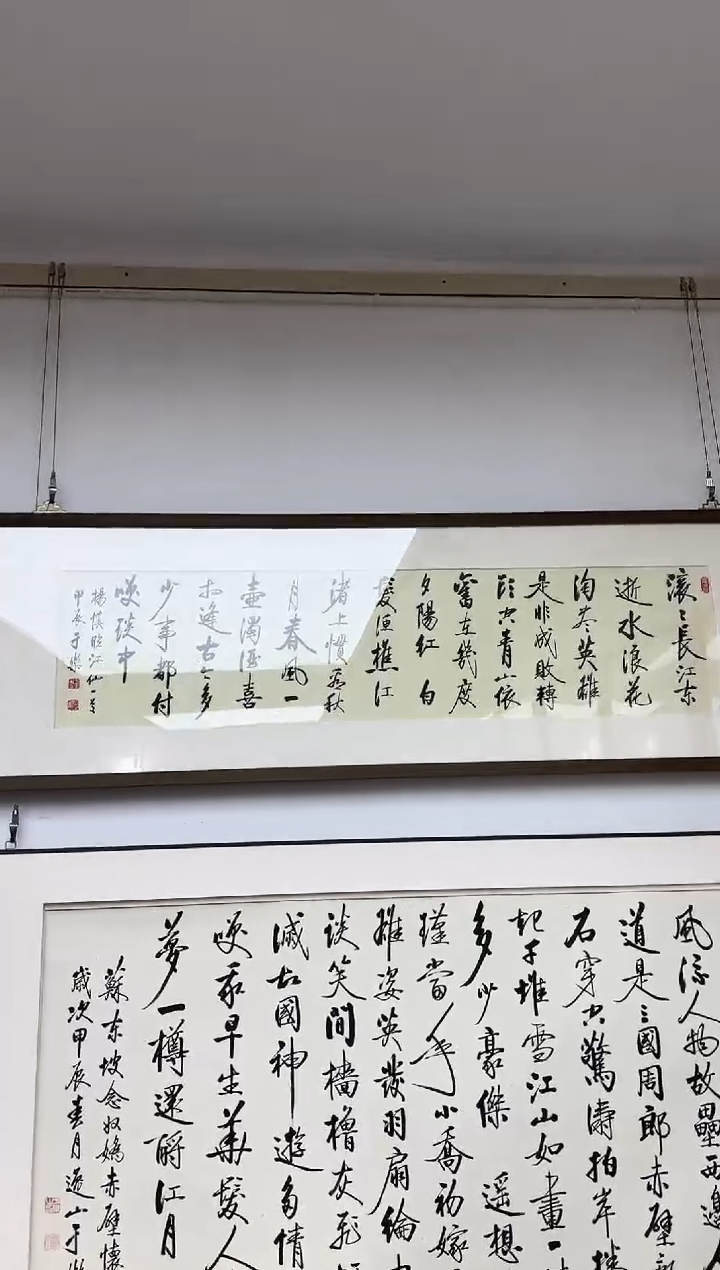 滚〻長江东
逝水浪花
淘尽英雄
是非成败轉
头空青山依
舊在幾度
夕陽红 白
髮渔樵江
渚上慣看秋
月春風一
壺濁酒喜
相逢古今多
少事都付
笑談中
楊慎临江仙一首
甲辰于
風流人物故壘西邊人
道是三國周郎赤壁
石穿空驚濤拍岸捲
起千堆雪江山如畫一
多少豪傑 遥想
瑾當年小喬初嫁
雄姿英發羽扇綸
談笑間檣櫓灰飛
滅故國神遊多情
笑我早生華髮人
夢一樽還酹江月
蘇东坡念奴嬌赤壁懷
歲次甲辰春月逸山于